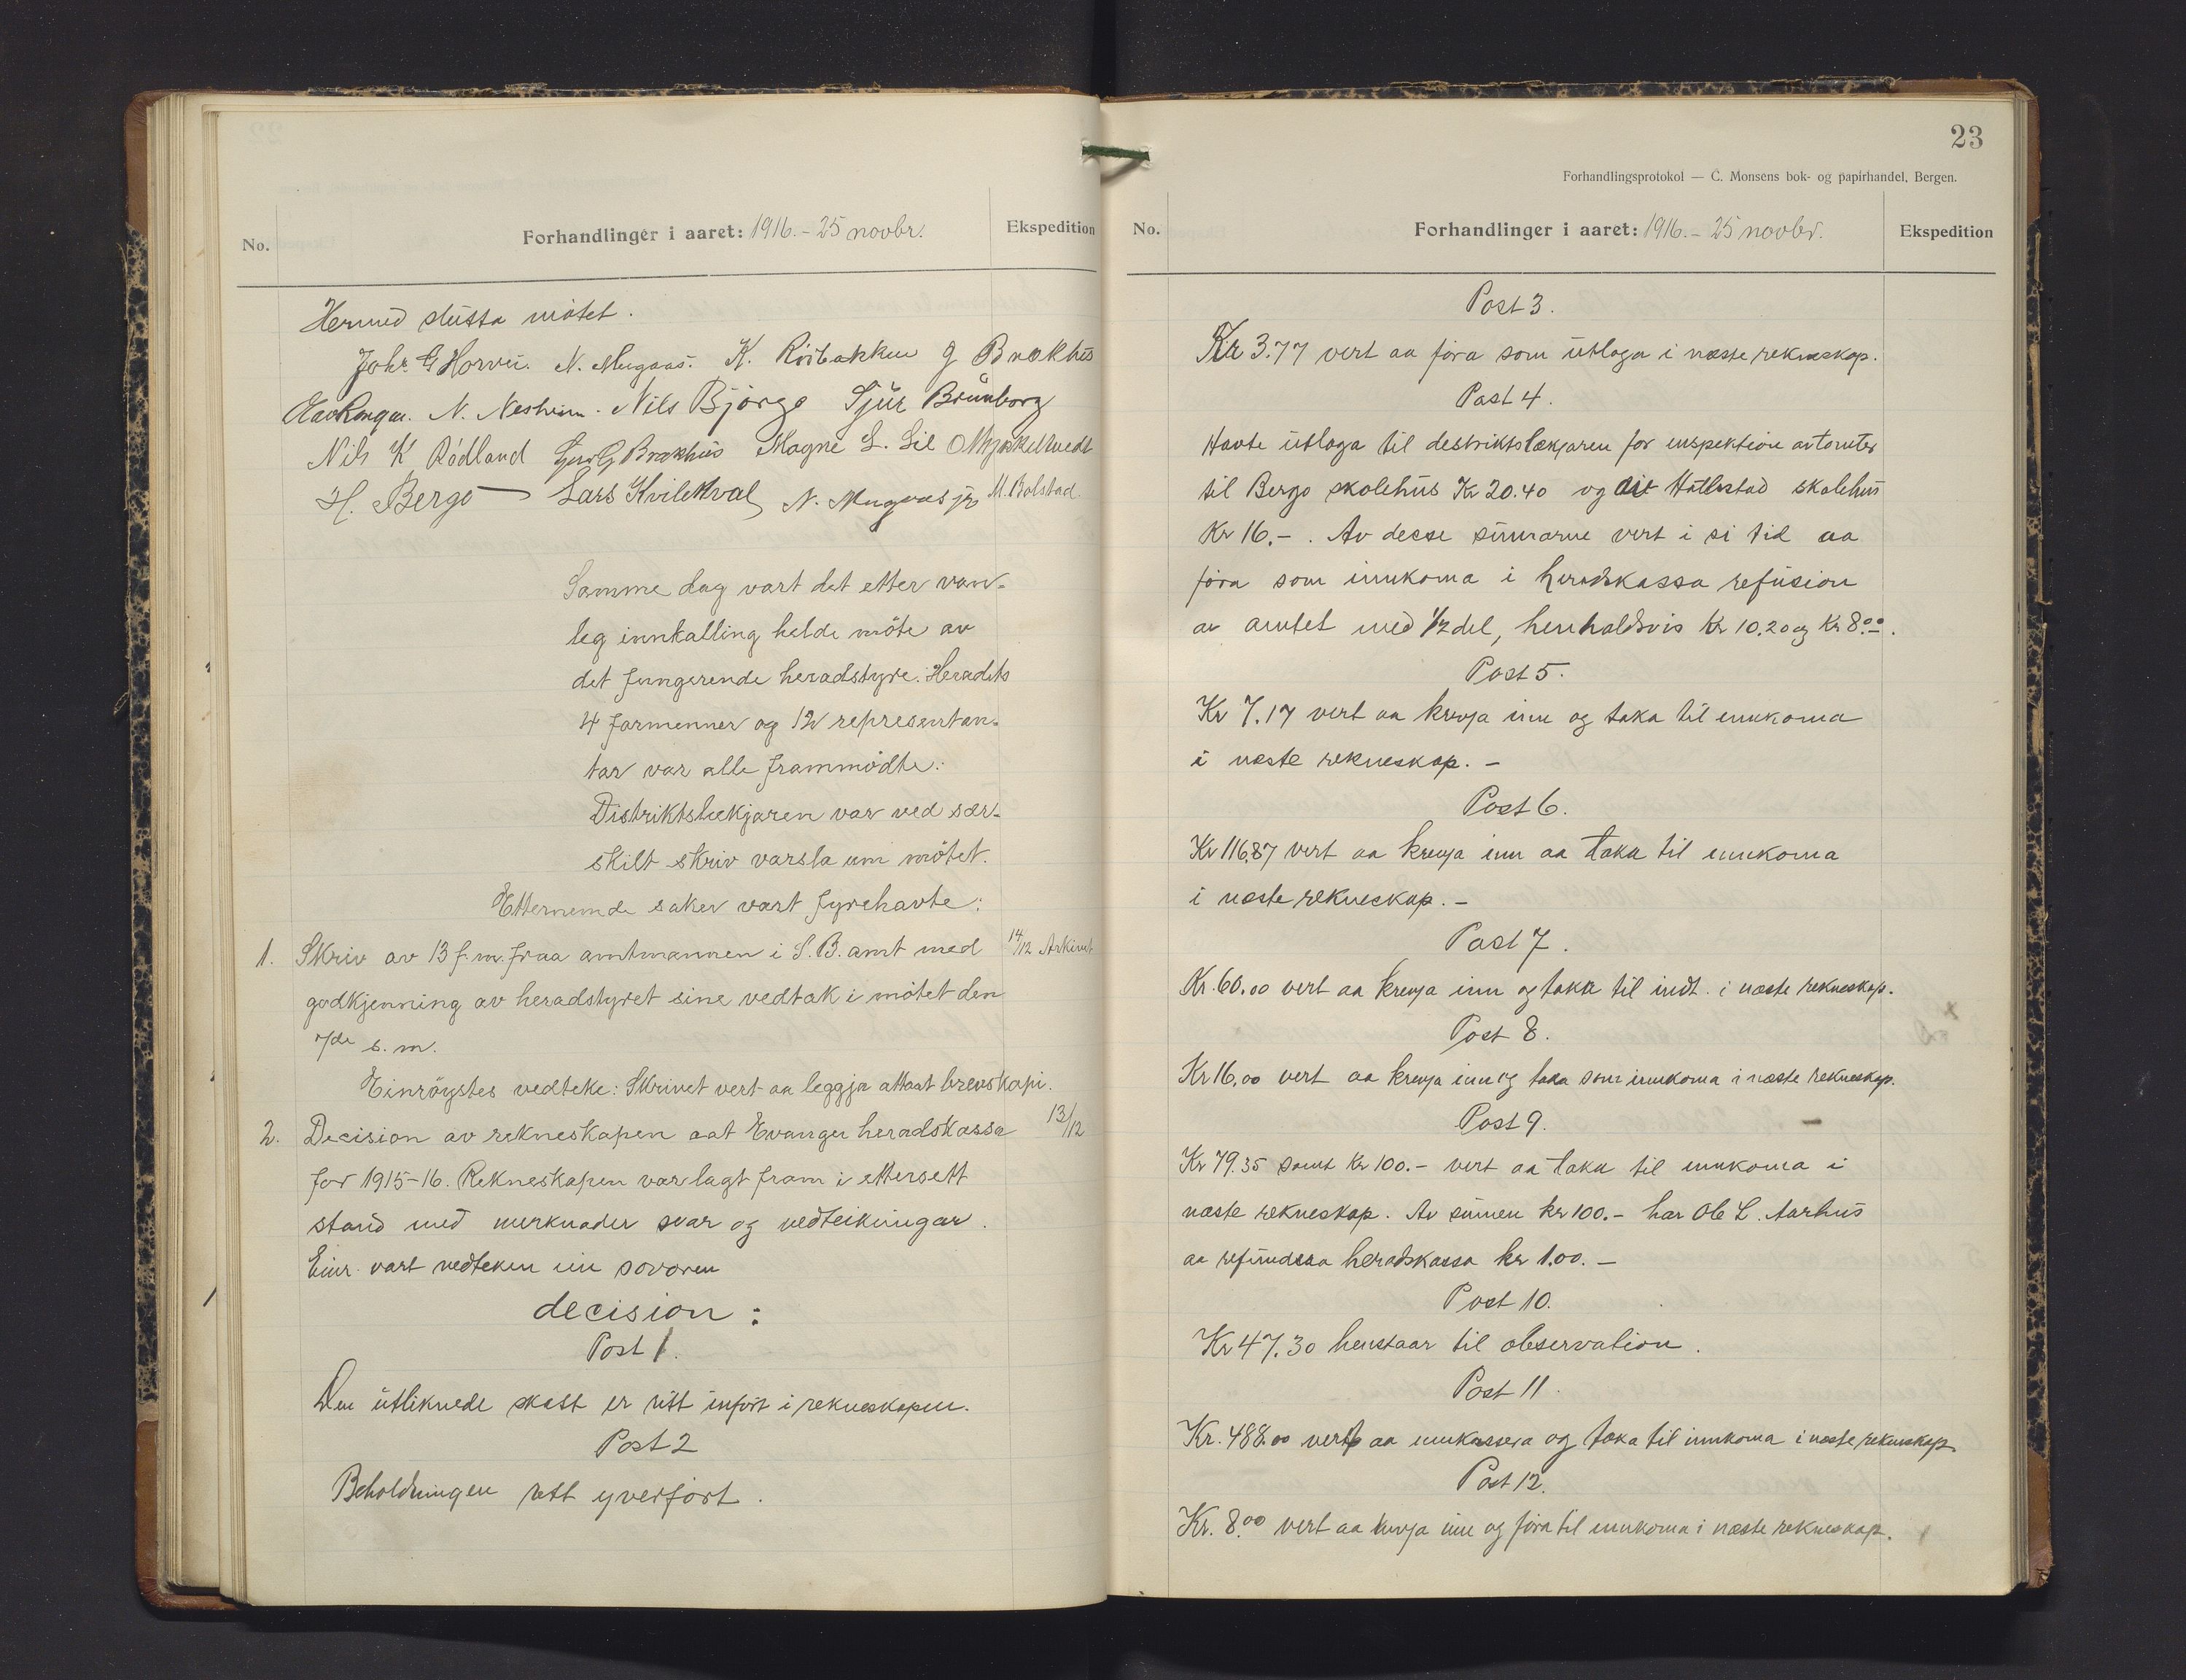 No. Forhandlinger i aaret: 1916. - 25 novbr. Ekspedition
Hermed slutta møtet.
Johs G Horvei. N. Mugaas. K. Rösbakken G Brakhus
N. Nesheim. Nils Björgo Sjur Brunborg
Nils K Rödland Brakhus Magne L. Lil O Mjøkeltvedt
H. Bergo Lars Kvilekval N. Mugaas jr M. Bolstad.
Samme dag vart det etter van-
leg innkalling helde møte av
det fungerende heradstyre. Heradets
4 formenner og 12 representan-
tar var alle frammödte.
Distriktslækjaren var ved sær-
skilt skriv varsla um mötet.
Etternemde saker vart fyrehavte:
1. Skriv av 13 f.m. fraa amtmannen i S. B. amt med 14/12 Arkivet
godkjenning av heradstyret sine vedtak i mötet den
7de s. m.
Einröystes vedteke: Skrivet vert aa leggja attaat brevskapi.
2. Decision av rekneskapen aat Evanger heradskassa 13/12
for 1915-16. Rekneskapen var lagt fram i ettersett
stand med merknader svar og vedteikningar.
Einr. vart vedteken ein sovoren
decision:
Post 1.
Den utliknede skatt er rett infört i rekneskapen.
Post 2
Beholdningen rett yverfört.
23
Forhandlingsprotokol — C. Monsens bok- og papirhandel, Bergen.
No. Forhandlinger i aaret: 1916. - 25 novbr. Ekspedition
Post 3.
Kr 3.77 vert aa föra som utloga i næste rekneskap.
Post 4.
Havte utloga til destriktslækjaren for inspektion av tomter
til Bergo skolehus Kr 20.40 og Hallestad skolehus
Kr 16.- . Av desse summarne vert i si tid aa
föra som innkoma i heradskassa refusion
av amtet med 1/2 del, henholdsvis Kr 10.20 og Kr 8.00.
Post 5.
Kr 7.17 vert aa krevja inn og taka til innkoma
i næste rekneskap. -
Post 6.
Kr 116,87 vert aa krevja inn aa taka til innkoma
i næste rekneskap. -
Post 7.
Kr. 60.00 vert aa krevja inn og taka til indt. i næste rekneskap.
Post 8.
Kr 16,00 vert aa krevja inn og taka som innkoma i næste rekneskap.
Post 9.
Kr 79.35 samt Kr 100.- vert aa taka til innkoma i
næste rekneskap. Av sumen kr 100.- har Ole L. Aarhus
aa refundera heradskassa kr 1.00. -
Post 10.
Kr 47.30 henstaar til observation.
Post 11.
Kr. 488.00 vert aa innkassera og taka til innkoma i næste rekneskap.
Post 12.
Kr. 8.00 vert aa krevja inn og föra til innkoma i næste rekneskap.